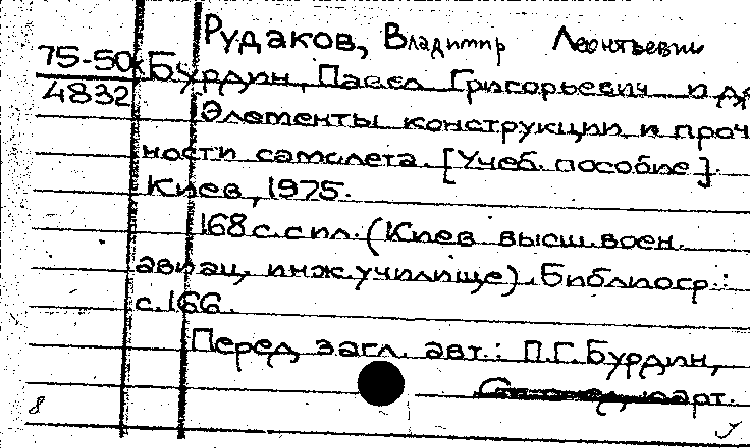 Рудаков, Владимир Леонтьевич
75-50
4832
Бурдин, Павел Григорьевич и др.
Элементы конструкции и проч
ности самолета. [Учеб. пособие].
Киев, 1975.
168 с. с ил. (Киев. высш. воен.
авиац. инж. училище). Библиогр.:
с. 166.
Перед загл. авт.: П.Г. Бурдин,
8